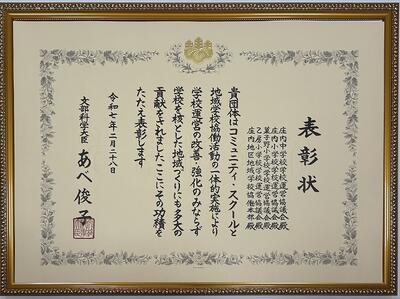 表彰状
庄内中学校学校運営協議会殿
庄内小学校学校運営協議会殿
菓子野小学校学校運営協議会殿
乙房小学校学校運営協議会殿
庄内地区地域学校協働本部殿
貴団体はコミュニティ・スクールと
地域学校協働活動の一体的実施により
学校運営の改善・強化のみならず
学校を核とした地域づくりにも多大の
貢献をされましたここにその功績を
たたえ表彰します
令和七年二月二十八日
文部科学大臣 あべ俊子